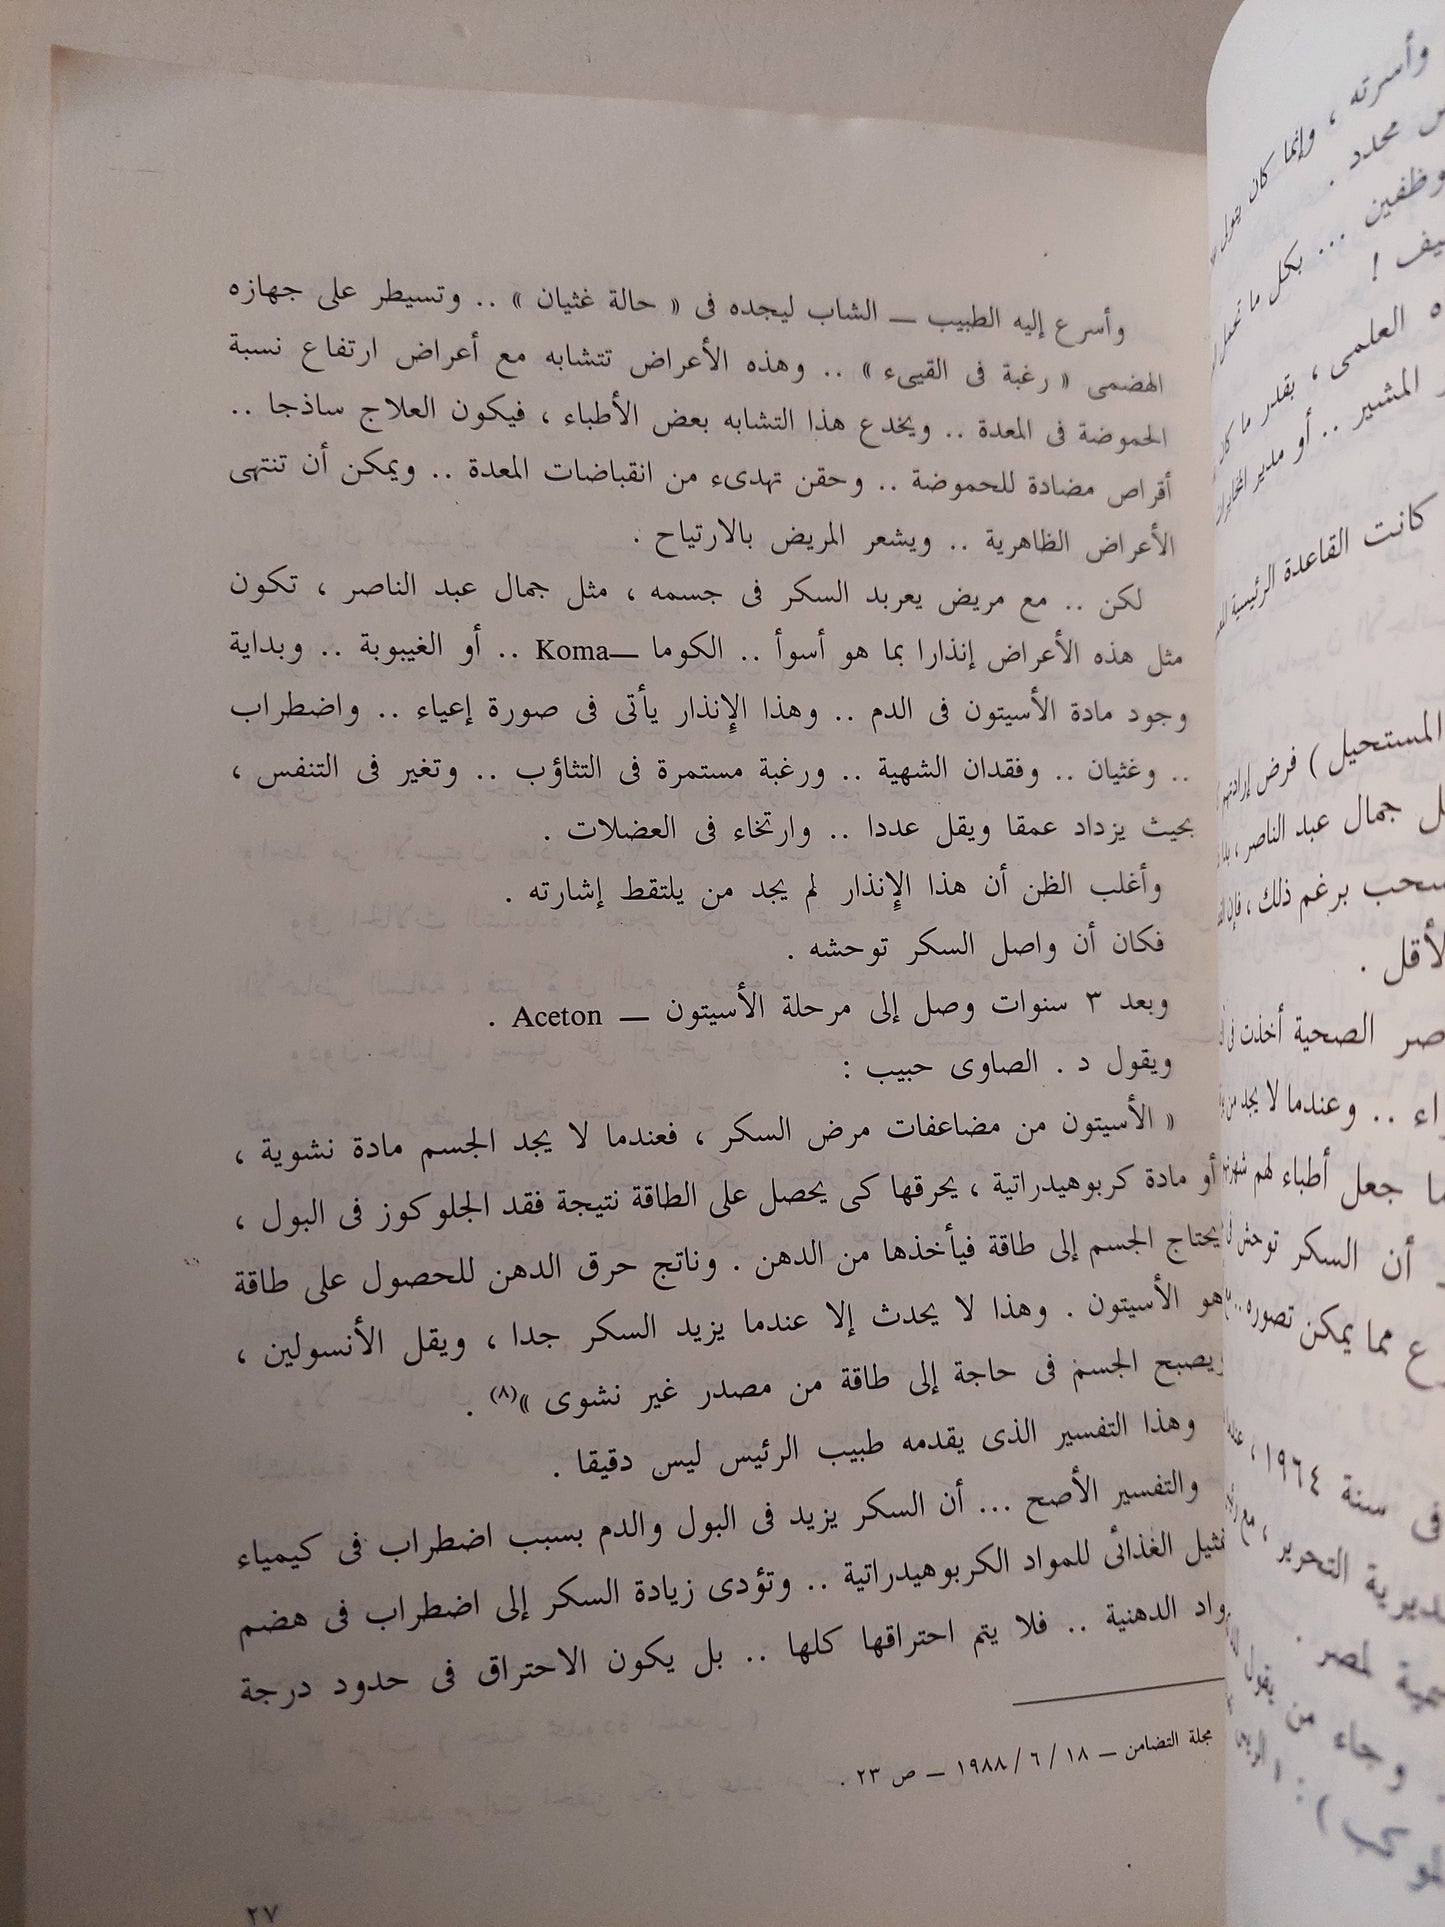 وأسرع إليه الطبيب — الشاب ليجده فى « حالة غثيان » .. وتسيطر على جهازه
الهضمى « رغبة فى القيىء » .. وهذه الأعراض تتشابه مع أعراض ارتفاع نسبة
الحموضة فى المعدة .. ويخدع هذا التشابه بعض الأطباء ، فيكون العلاج ساذجا ..
أقراص مضادة للحموضة .. وحقن تهدىء من انقباضات المعدة .. ويمكن أن تنتهى
الأعراض الظاهرية .. ويشعر المريض بالارتياح .
لكن .. مع مريض يعربد السكر فى جسمه ، مثل جمال عبد الناصر ، تكون
مثل هذه الأعراض إنذارا بما هو أسوأ .. الكوما —Koma .. أو الغيبوبة .. وبداية
وجود مادة الأسيتون فى الدم .. وهذا الإنذار يأتى فى صورة إعياء .. واضطراب
.. وغثيان .. وفقدان الشهية .. ورغبة مستمرة فى التثاؤب .. وتغير فى التنفس ،
بحيث يزداد عمقا ويقل عددا .. وارتخاء فى العضلات .
وأغلب الظن أن هذا الإنذار لم يجد من يلتقط إشارته .
فكان أن واصل السكر توحشه .
وبعد ٣ سنوات وصل إلى مرحلة الأسيتون — Aceton .
ويقول د . الصاوى حبيب :
« الأسيتون من مضاعفات مرض السكر ، فعندما لا يجد الجسم مادة نشوية ،
أو مادة كربوهيدراتية ، يحرقها كى يحصل على الطاقة نتيجة فقد الجلوكوز فى البول ،
يحتاج الجسم إلى طاقة فيأخذها من الدهن . وناتج حرق الدهن للحصول على طاقة
هو الأسيتون . وهذا لا يحدث إلا عندما يزيد السكر جدا ، ويقل الأنسولين ،
ويصبح الجسم فى حاجة إلى طاقة من مصدر غير نشوى »(٨) .
وهذا التفسير الذى يقدمه طبيب الرئيس ليس دقيقا .
والتفسير الأصح ... أن السكر يزيد فى البول والدم بسبب اضطراب فى كيمياء
الغذائى للمواد الكربوهيدراتية .. وتؤدى زيادة السكر إلى اضطراب فى هضم
الدهنية .. فلا يتم احتراقها كلها .. بل يكون الاحتراق فى حدود درجة
مجلة التضامن — ١٨ / ٦ / ١٩٨٨ — ص ٢٣ .
٢٧
وأسرته ، وإنما كان يتولى
محدد .
... بكل ما
!
العلمى ، بقدر ما كان
المشير .. أو مدير المخابرات
كانت القاعدة الرئيسية
المستحيل ) فرض إرادتهم
جمال عبد الناصر ،
برغم ذلك ، فإن
الأقل .
الصحية أخذت فى
.. وعندما لا يجد من
جعل أطباء لهم
أن السكر توحش
مما يمكن تصوره ..
فى سنة ١٩٦٤ ،
التحرير ، مع
لمصر .
وجاء من يقول